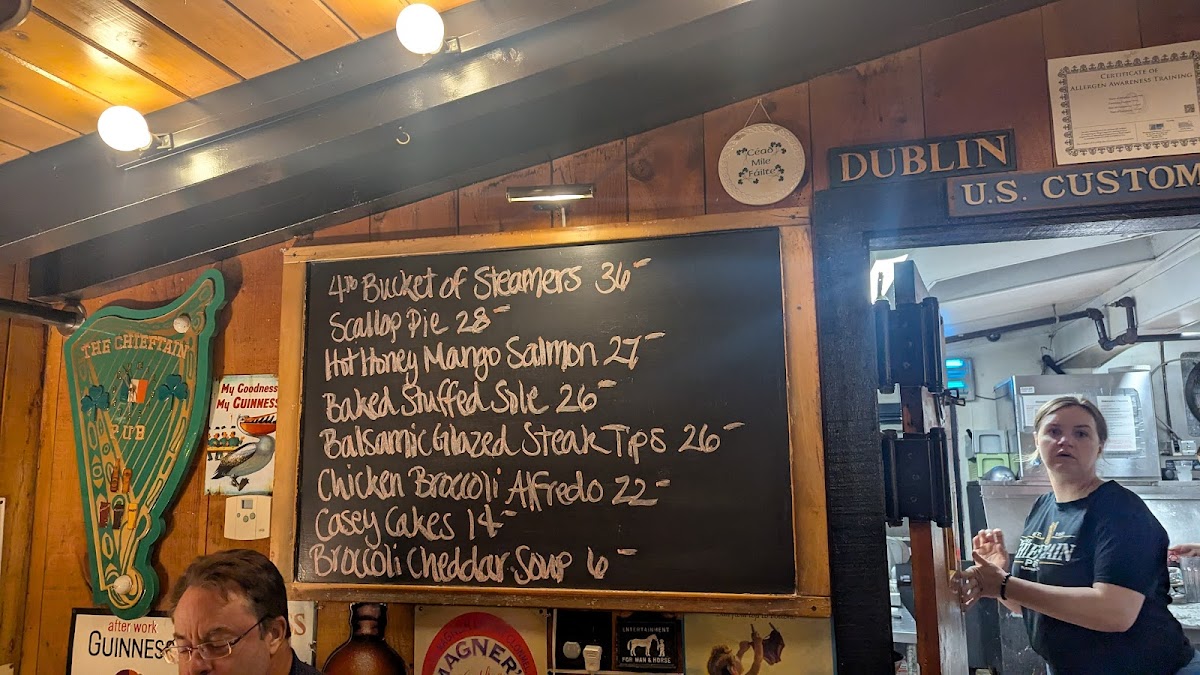 CERTIFICATE OF
ALLERGEN AWARENESS TRAINING
Céad
Míle
Fáilte
DUBLIN
U.S. CUSTOM
4 LB BUCKET OF STEAMERS 36-
SCALLOP PIE 28-
HOT HONEY MANGO SALMON 27-
BAKED STUFFED SOLE 26-
BALSAMIC GLAZED STEAK TIPS 26-
CHICKEN BROCCOLI ALFREDO 22-
CASEY CAKES 14-
BROCCOLI CHEDDAR SOUP 6-
THE CHIEFTAIN
PUB
My Goodness
My GUINNESS
after work
GUINNESS
MAGNER'S
ENTERTAINMENT
FOR MAN & HORSE
CHIEFTAIN